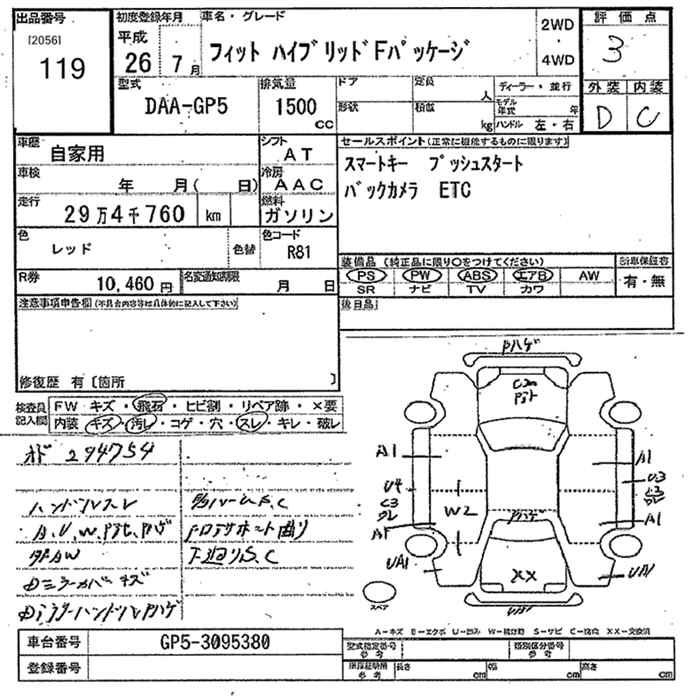 出品番号 初度登録年月 車名・グレード 2WD ・ 4WD 評価点
[2056] 119 平成 26年 7月 フィット ハイブリッドFパッケージ 3
型式 排気量 ドア 定員 人 ディーラー・並行 外装 内装
DAA-GP5 1500 cc 形状 積載 kg モデル年式 年 D C
ハンドル 左・右
車歴 自家用 シフト AT セールスポイント(正常に機能するものに限ります)
車検 年 月( 日) 冷房 AAC スマートキー プッシュスタート
走行 29万4千760 km 燃料 ガソリン バックカメラ ETC
色 レッド 色替 色コード R81
装備品 (純正品に限り○をつけてください) 新車保証書
R券 10,460円 名変通知期限 月 日 PS PW ABS エアB AW 有・無
SR ナビ TV カワ
注意事項申告欄(不具合内容等は具体的に記入して下さい) 後日品
修復歴 有 〔箇所 〕
検査員 記入欄 FW キズ・飛石・ヒビ割・リペア跡・×要
内装 キズ・汚レ・コゲ・穴・スレ・キレ・破レ
オド 294754
ハンドルスレ
A、U、W、
下廻りS、C
Pハゲ
A1 A1
U4 U3
C3 C3
W2
Pハゲ
A1
UA1 XX UA1
スペア
A−キズ E−エクボ U−凹み W−補修跡 S−サビ C−腐食 XX−交換済
車台番号 GP5-3095380 型式指定番号 参考 類別区分番号 参考
登録番号 参考 長さ cm 幅 cm 高さ cm